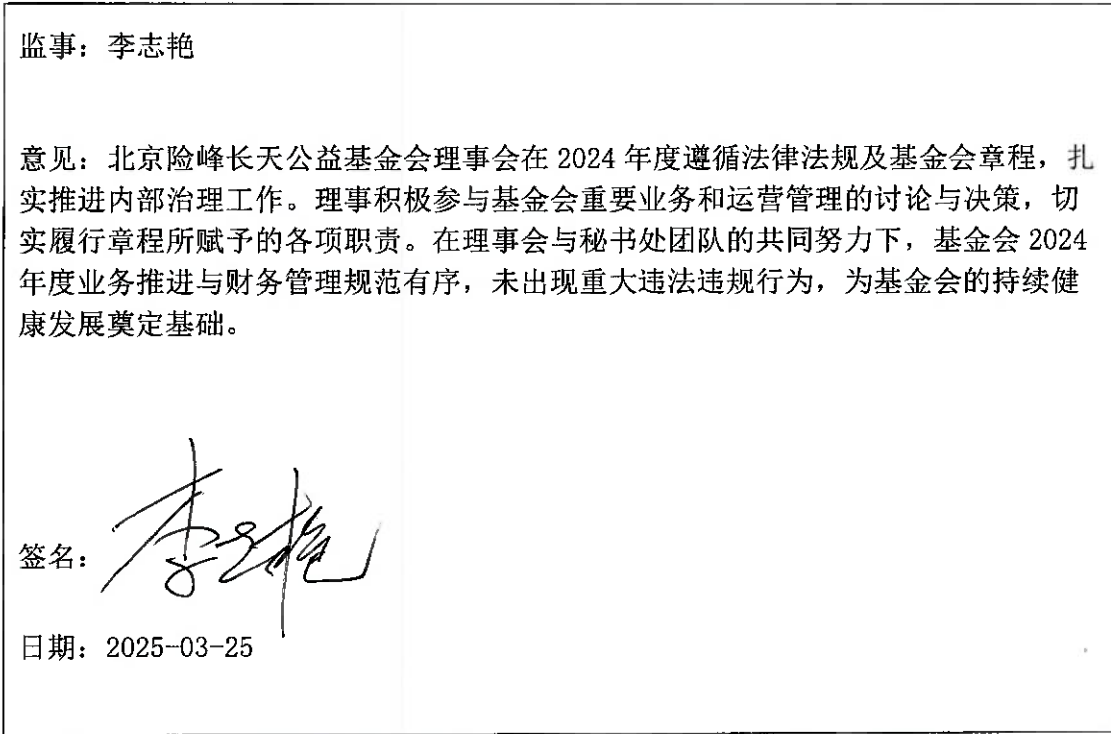 监事：李志艳
意见：北京险峰长天公益基金会理事会在 2024 年度遵循法律法规及基金会章程，扎
实推进内部治理工作。理事积极参与基金会重要业务和运营管理的讨论与决策，切
实履行章程所赋予的各项职责。在理事会与秘书处团队的共同努力下，基金会 2024
年度业务推进与财务管理规范有序，未出现重大违法违规行为，为基金会的持续健
康发展奠定基础。
签名：李志艳
日期：2025-03-25